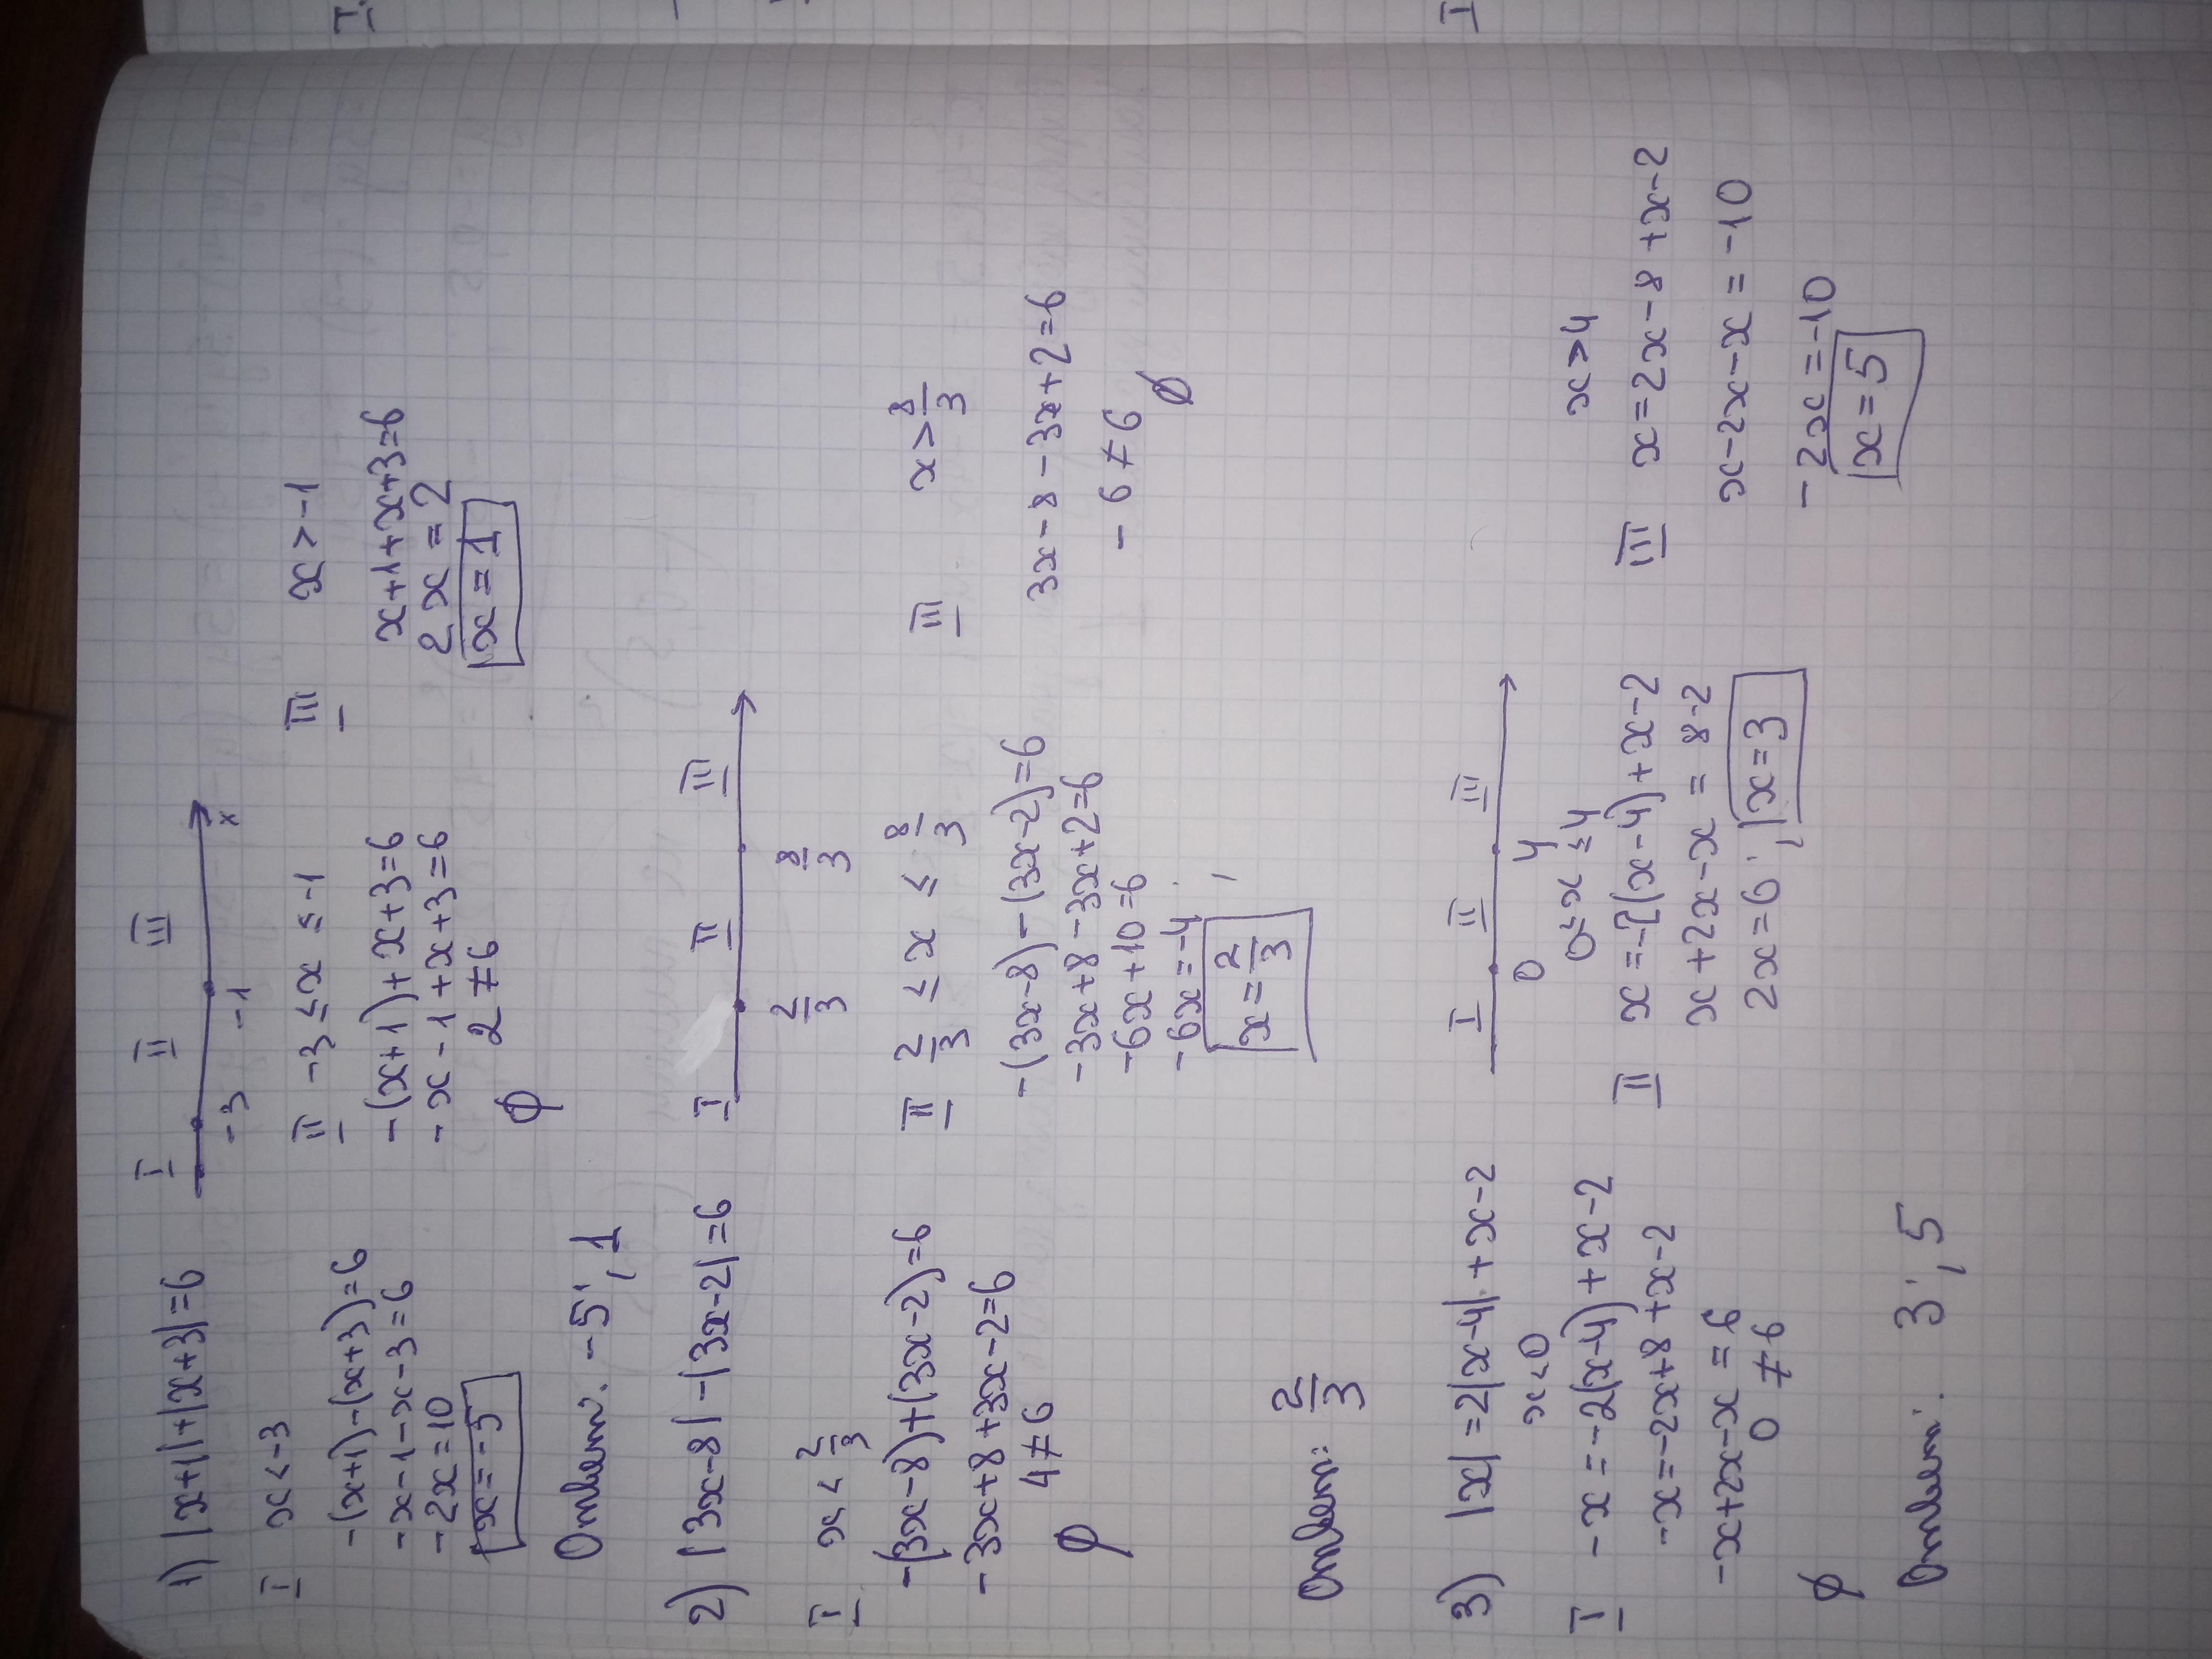 1) |x+1|+|x+3|=6
I II III
-3 -1 x
I x<-3
-(x+1)-(x+3)=6
-x-1-x-3=6
-2x=10
x=-5
II -3≤x≤-1
-(x+1)+x+3=6
-x-1+x+3=6
2≠6
∅
III x>-1
x+1+x+3=6
2x=2
x=1
Ответ: -5; 1
2) |3x-8|-|3x-2|=6
I II III
2/3 8/3
I x<2/3
-(3x-8)+(3x-2)=6
-3x+8+3x-2=6
4≠6
∅
II 2/3≤x≤8/3
-(3x-8)-(3x-2)=6
-3x+8-3x+2=6
-6x+10=6
-6x=-4
x=2/3
III x>8/3
3x-8-3x+2=6
-6≠6
∅
Ответ: 2/3
3) |x|=2|x-4|+x-2
I II III
0 4
x<0
I -x=-2(x-4)+x-2
-x=-2x+8+x-2
-x+2x-x=6
0≠6
∅
0≤x≤4
II x=-2(x-4)+x-2
x+2x-x=8-2
2x=6; x=3
x>4
III x=2x-8+x-2
x-2x-x=-10
-2x=-10
x=5
Ответ: 3; 5